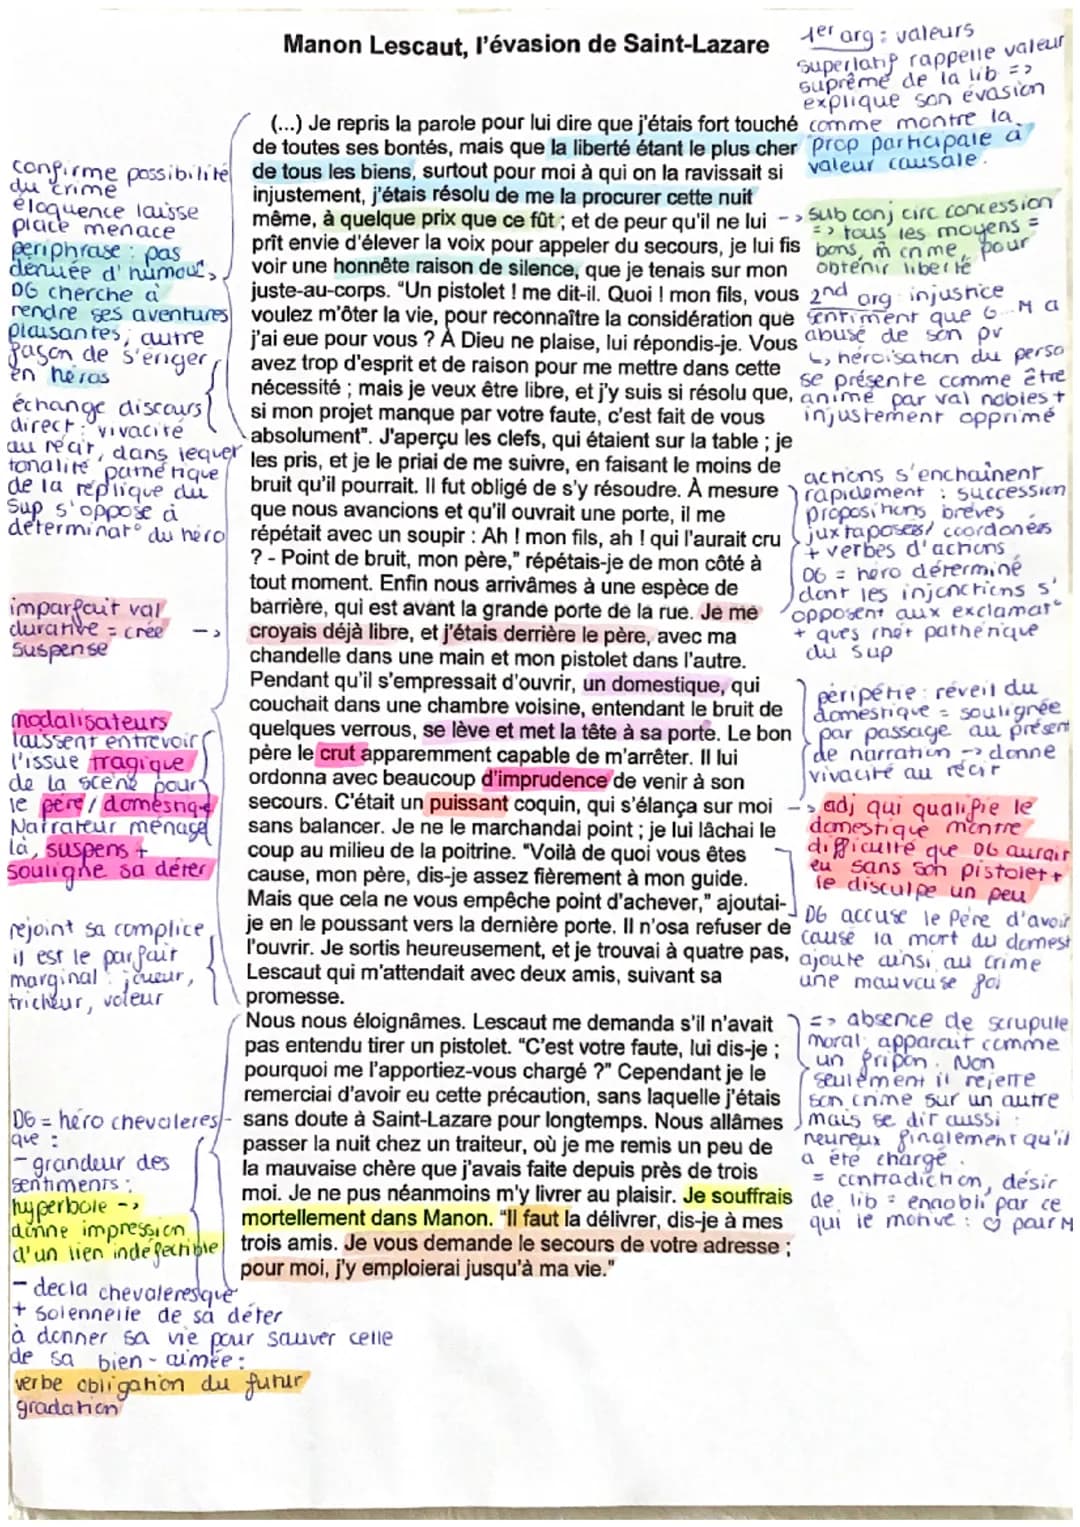 Manon Lescaut, l'évasion de Saint-Lazare
1er arg : valeurs
superlatif rappelle valeur
suprême de la lib =>
explique son évasion
comme montre la
prop participale à
valeur causale.
(...) Je repris la parole pour lui dire que j'étais fort touché
de toutes ses bontés, mais que la liberté étant le plus cher
de tous les biens, surtout pour moi à qui on la ravissait si
injustement, j'étais résolu de me la procurer cette nuit
même, à quelque prix que ce fût ; et de peur qu'il ne lui
prît envie d'élever la voix pour appeler du secours, je lui fis
voir une honnête raison de silence, que je tenais sur mon
juste-au-corps. "Un pistolet ! me dit-il. Quoi ! mon fils, vous
voulez m'ôter la vie, pour reconnaître la considération que
j'ai eue pour vous ? À Dieu ne plaise, lui répondis-je. Vous
avez trop d'esprit et de raison pour me mettre dans cette
nécessité ; mais je veux être libre, et j'y suis si résolu que,
si mon projet manque par votre faute, c'est fait de vous
absolument". J'aperçu les clefs, qui étaient sur la table ; je
les pris, et je le priai de me suivre, en faisant le moins de
bruit qu'il pourrait. Il fut obligé de s'y résoudre. À mesure
que nous avancions et qu'il ouvrait une porte, il me
répétait avec un soupir : Ah ! mon fils, ah ! qui l'aurait cru
? - Point de bruit, mon père," répétais-je de mon côté à
tout moment. Enfin nous arrivâmes à une espèce de
barrière, qui est avant la grande porte de la rue. Je me
croyais déjà libre, et j'étais derrière le père, avec ma
chandelle dans une main et mon pistolet dans l'autre.
Pendant qu'il s'empressait d'ouvrir, un domestique, qui
couchait dans une chambre voisine, entendant le bruit de
quelques verrous, se lève et met la tête à sa porte. Le bon
père le crut apparemment capable de m'arrêter. Il lui
ordonna avec beaucoup d'imprudence de venir à son
secours. C'était un puissant coquin, qui s'élança sur moi
sans balancer. Je ne le marchandai point ; je lui lâchai le
coup au milieu de la poitrine. "Voilà de quoi vous êtes
cause, mon père, dis-je assez fièrement à mon guide.
Mais que cela ne vous empêche point d'achever," ajoutai-
je en le poussant vers la dernière porte. Il n'osa refuser de
l'ouvrir. Je sortis heureusement, et je trouvai à quatre pas,
Lescaut qui m'attendait avec deux amis, suivant sa
promesse.
Nous nous éloignâmes. Lescaut me demanda s'il n'avait
pas entendu tirer un pistolet. "C'est votre faute, lui dis-je ;
pourquoi me l'apportiez-vous chargé ?" Cependant je le
remerciai d'avoir eu cette précaution, sans laquelle j'étais
sans doute à Saint-Lazare pour longtemps. Nous allâmes
passer la nuit chez un traiteur, où je me remis un peu de
la mauvaise chère que j'avais faite depuis près de trois
moi. Je ne pus néanmoins m'y livrer au plaisir. Je souffrais
mortellement dans Manon. "Il faut la délivrer, dis-je à mes
trois amis. Je vous demande le secours de votre adresse ;
pour moi, j'y emploierai jusqu'à ma vie."
confirme possibilité
du crime
éloquence laisse
place menace
periphrase : pas
dénuée d'humour,
DG cherche à
rendre ses aventures
plaisantes, autre
façon de s'ériger
en héros
échange discours
direct : vivacité
au récit, dans lequel
tonalité pathétique
de la réplique du
Sup s'oppose à
déterminat° du héro
imparfait val
durative = crée ->
suspense
modalisateurs
laissent entrevoir
l'issue tragique
de la scène pour
le père / domestiq
Narrateur ménage
là, suspens +
souligne sa déter
rejoint sa complice,
il est le parfait
marginal : joueur,
tricheur, voleur
DG = héro chevaleres-
que :
- grandeur des
sentiments :
hyperbole ->
donne impression
d'un lien indéfectible
- decla chevaleresque
+ solennelle de sa déter
à donner sa vie pour sauver celle
de sa bien-aimée :
verbe obligation du futur
gradation
-> sub conj circ concession
=> tous les moyens =
bons, m̂ crime, pour
obtenir liberté
2nd arg injustice
sentiment que G...M a
abusé de son pv
↳ héroïsation du perso
se présente comme être
animé par val nobles +
injustement opprimé
actions s'enchaînent
rapidement : succession
propositions brèves
juxtaposées/ coordonées
+ verbes d'actions
DG = héro déterminé
dont les injonctions s'
opposent aux exclamat°
+ ques rhét pathétique
du sup
péripétie : réveil du
domestique = soulignée
par passage au présent
de narration -> donne
vivacité au récit
-> adj qui qualifie le
domestique montre
difficulté que DG aurait
eu sans son pistolet +
le disculpe un peu
DG accuse le Père d'avoir
causé la mort du domest
ajoute ainsi au crime
une mauvaise foi
=> absence de scrupule
moral, apparaît comme
un fripon. Non
seulement il rejette
son crime sur un autre
mais se dit aussi
heureux finalement qu'il
a été chargé.
= contradiction, désir
de lib = ennobli par ce
qui le motive : ♡ pour M